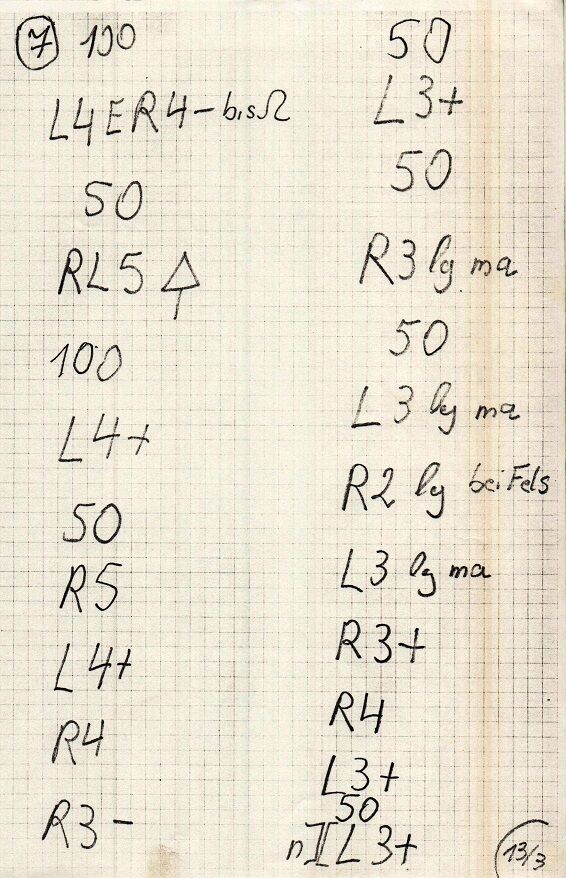 7 100
L4ER4- bis Ω
50
RL5
100
L4+
50
R5
L4+
R4
R3-
50
L3+
50
R3 lg ma
50
L3 lg ma
R2 lg bei Fels
L3 lg ma
R3+
R4
L3+
50
nII L3+
13/3